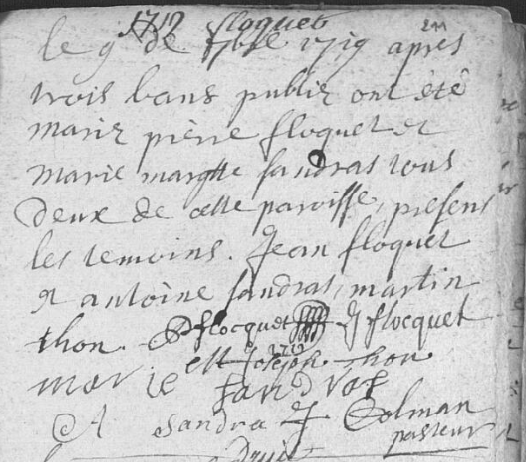 1719 floquet
le 9 de 7bre 1719 après
trois bans publiz ont été
mariz pierre floquet et
marie margtte sandras tous
deux de cette paroisse, presens
les temoins. Jean floquet
et antoine sandras, martin
thon. P flocquet J flocquet
1719
ett Joseph thon
marie sandras
A sandra J Colman
pasteur